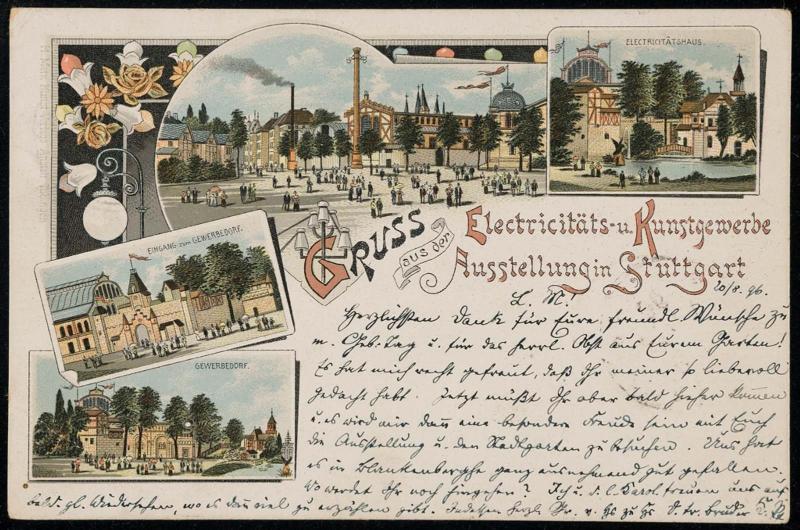 ELECTRICITÄTSHAUS.
EINGANG ZUM GEWERBEDORF.
GEWERBEDORF.
GRUSS aus der
Electricitäts- u. Kunstgewerbe
Ausstellung in Stuttgart
20/8. 96.
L. M.!
Herzlichsten Dank für Eure freundl Wünsche zu
m. Geb. Tag u. für das herrl. Obst aus Eurem Garten!
Es hat mich recht gefreut, daß Ihr meiner so liebevoll
gedacht habt. Jetzt müßt Ihr aber bald hieher kommen
u. es wird mir dann eine besondere Freude sein mit Euch
die Ausstellung u. den Stadtgarten zu besuchen. Uns hat
es in Blankenberghe ganz ausnehmend gut gefallen.
Wo werdet Ihr noch hingehen? Ich u. d. l. Karol. freuen uns auf
bald. gl. Wiedersehen, wo es dann viel zu erzählen gibt. Indessen herzl. Gr. v. Hs zu Hs